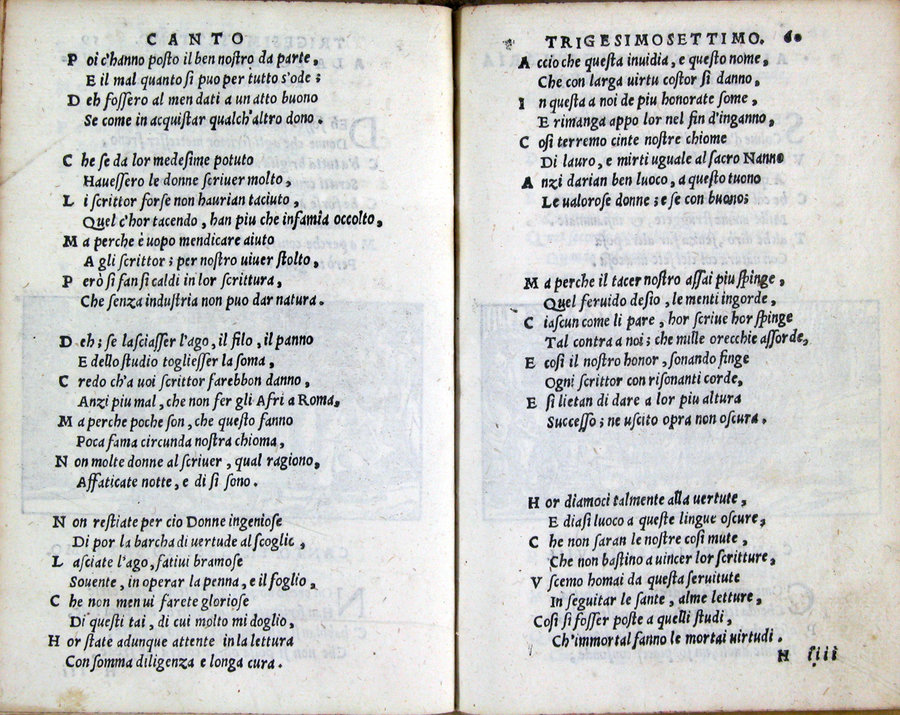 CANTO
Poi c'hanno posto il ben nostro da parte,
E il mal quanto si puo per tutto s'ode;
Deh fossero al men dati a un atto buono
Se come in acquistar qualch'altro dono.
Che se da lor medesime potuto
Hauessero le donne scriuer molto,
Li scrittor forse non haurian taciuto,
Quel c'hor tacendo, han piu che infamia occolto,
Ma perche è uopo mendicare aiuto
A gli scrittor; per nostro uiuer stolto,
Però si fan si caldi in lor scrittura,
Che senza industria non puo dar natura.
Deh; se lasciasser l'ago, il filo, il panno
E dello studio togliesser la soma,
Credo ch'a uoi scrittor farebbon danno,
Anzi piu mal, che non fer gli Afri a Roma,
Ma perche poche son, che questo fanno
Poca fama circunda nostra chioma,
Non molte donne al scriuer, qual ragiono,
Affaticate notte, e di si sono.
Non restiate per cio Donne ingeniose
Di por la barcha di uertude al scoglio,
Lasciate l'ago, fatiui bramose
Souente, in operar la penna, e il foglio,
Che non men ui farete gloriose
Di questi tai, di cui molto mi doglio,
Hor state adunque attente in la lettura
Con somma diligenza e longa cura.
TRIGESIMOSETTIMO. 60
Accio che questa inuidia, e questo nome,
Che con larga uirtu costor si danno,
In questa a noi de piu honorate some,
E rimanga appo lor nel fin d'inganno,
Cosi terremo cinte nostre chiome
Di lauro, e mirti uguale al sacro Nanno
Anzi darian ben luoco, a questo tuono
Le ualorose donne; e se con buono;
Ma perche il tacer nostro assai piu spinge,
Quel feruido desio, le menti ingorde,
Ciascun come li pare, hor scriue hor spinge
Tal contra a noi; che mille orecchie assorde,
E cosi il nostro honor, sonando finge
Ogni scrittor con risonanti corde,
E si lietan di dare a lor piu altura
Successo; ne uscito opra non oscura.
Hor diamoci talmente alla uertute,
E diasi luoco a queste lingue oscure,
Che non saran le nostre cosi mute,
Che non bastino a uincer lor scritture,
Vscemo homai da questa seruitute
In seguitar le sante, alme letture,
Cosi si fosser poste a quelli studi,
Ch'immortal fanno le mortai uirtudi.
H iiii